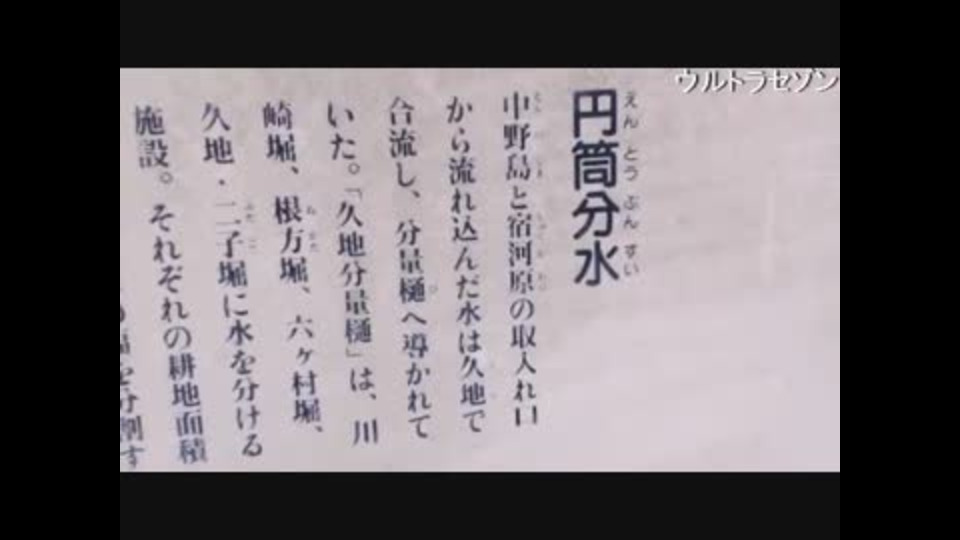 ウルトラセゾン
円筒分水
えんとうぶんすい
中野島と宿河原の取入れ口
から流れ込んだ水は久地で
合流し、分量樋へ導かれて
いた。「久地分量樋」は、川
崎堀、根方堀、六ヶ村堀、
久地・二子堀に水を分ける
施設。それぞれの耕地面積